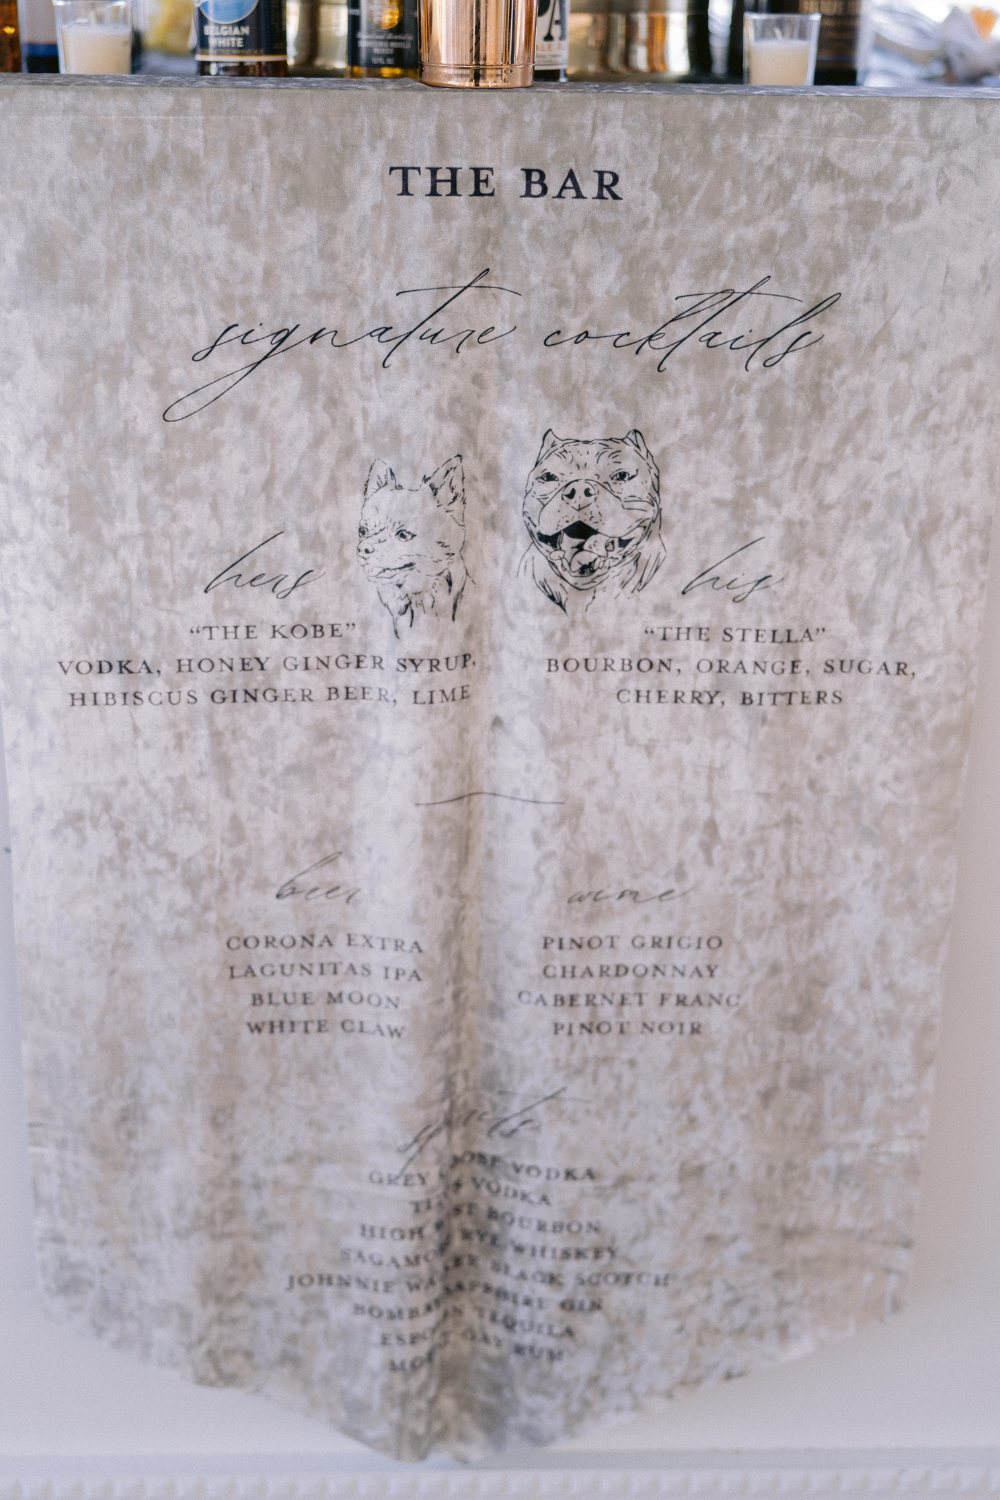 BELGIAN
WHITE
THE BAR
signature cocktails
hers
"THE KOBE"
VODKA, HONEY GINGER SYRUP,
HIBISCUS GINGER BEER, LIME
his
"THE STELLA"
BOURBON, ORANGE, SUGAR,
CHERRY, BITTERS
beer
CORONA EXTRA
LAGUNITAS IPA
BLUE MOON
WHITE CLAW
wine
PINOT GRIGIO
CHARDONNAY
CABERNET FRANC
PINOT NOIR
spirits
GREY VODKA
VODKA
BOURBON
HIGH RYE WHISKEY
BLACK SCOTCH
JOHNNIE SAPPHIRE GIN
TEQUILA
RUM